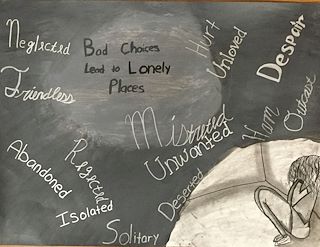 Neglected
Friendless
Bad Choices
Lead to Lonely
Places
Hurt
Unloved
Despair
Outcast
Mistrusted
Unwanted
Abandoned
Rejected
Isolated
Deserted
Solitary